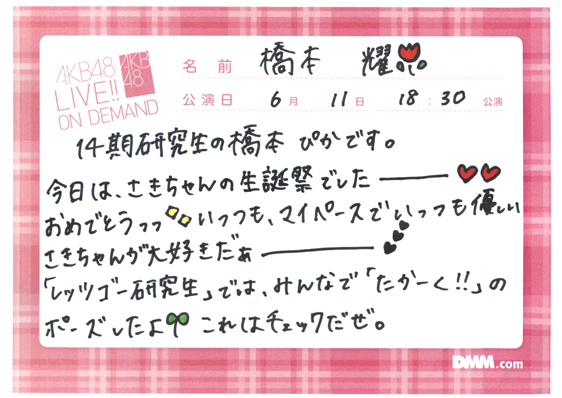 AKB48
LIVE!!
ON DEMAND
AKB
48
名前 橋本 耀
公演日 6月 11日 18:30 公演
14期研究生の橋本 ぴかです。
今日は、さきちゃんの生誕祭でしたーーー
おめでとうっっ いっつも、マイペースでいっつも優しい
さきちゃんが大好きだぁーーー
「レッツゴー研究生」では、みんなで「たかーく!!」の
ポーズしたよ これはチェックだぜ。
DMM.com